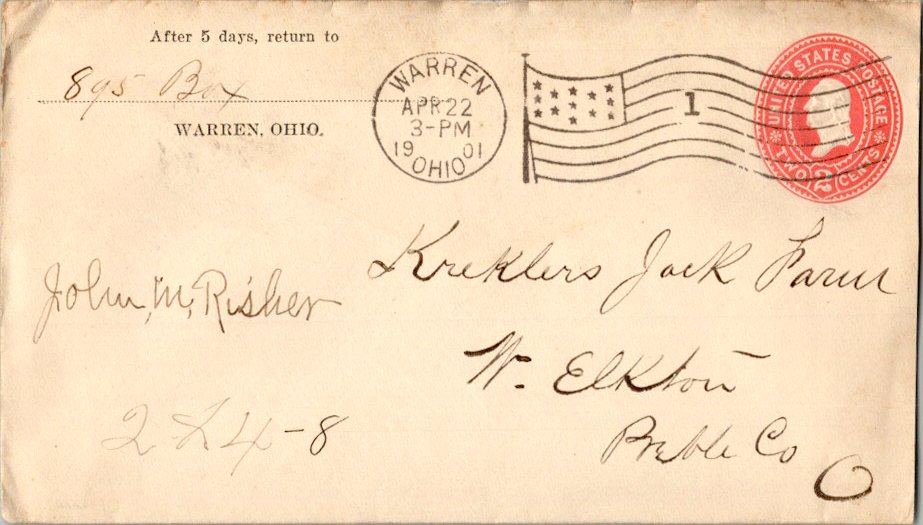 After 5 days, return to
895 Box
WARREN, OHIO.
WARREN
APR 22
3-PM
1901
OHIO
1
UNITED STATES POSTAGE
TWO 2 CENTS
Kreklers Jack Farm
W. Elkton
Preble Co
O
John, M, Risher
2 24-8